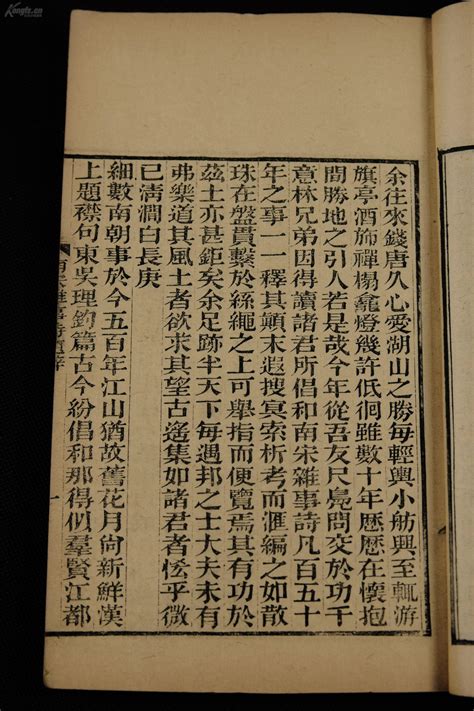 余往來錢唐久心愛湖山之勝每輕輿小舫興至輒游
旗亭酒斾禪榻龕燈幾許低徊雖數十年歷歷在懷抱
間勝地之引人若是哉今年從吾友尺鳧問交於功千
意林兄弟因得讀諸君所倡和南宋雜事詩凡百五十
年之事一一釋其顛末遐搜冥索析考而滙編之如散
珠在盤貫繫於絲繩之上可舉指而便覽焉其有功於
茲土亦甚鉅矣余足跡半天下每遇邦之士大夫未有
弗樂道其風土者欲求其望古遙集如諸君者恡乎微
已清澗白長庚
細數南朝事於今五百年江山猶故舊花月尙新鮮漢
上題襟句東吳理鈎篇古今紛倡和那得似羣賢江都
南宋雜事詩題辭
一
Kongfz.cn